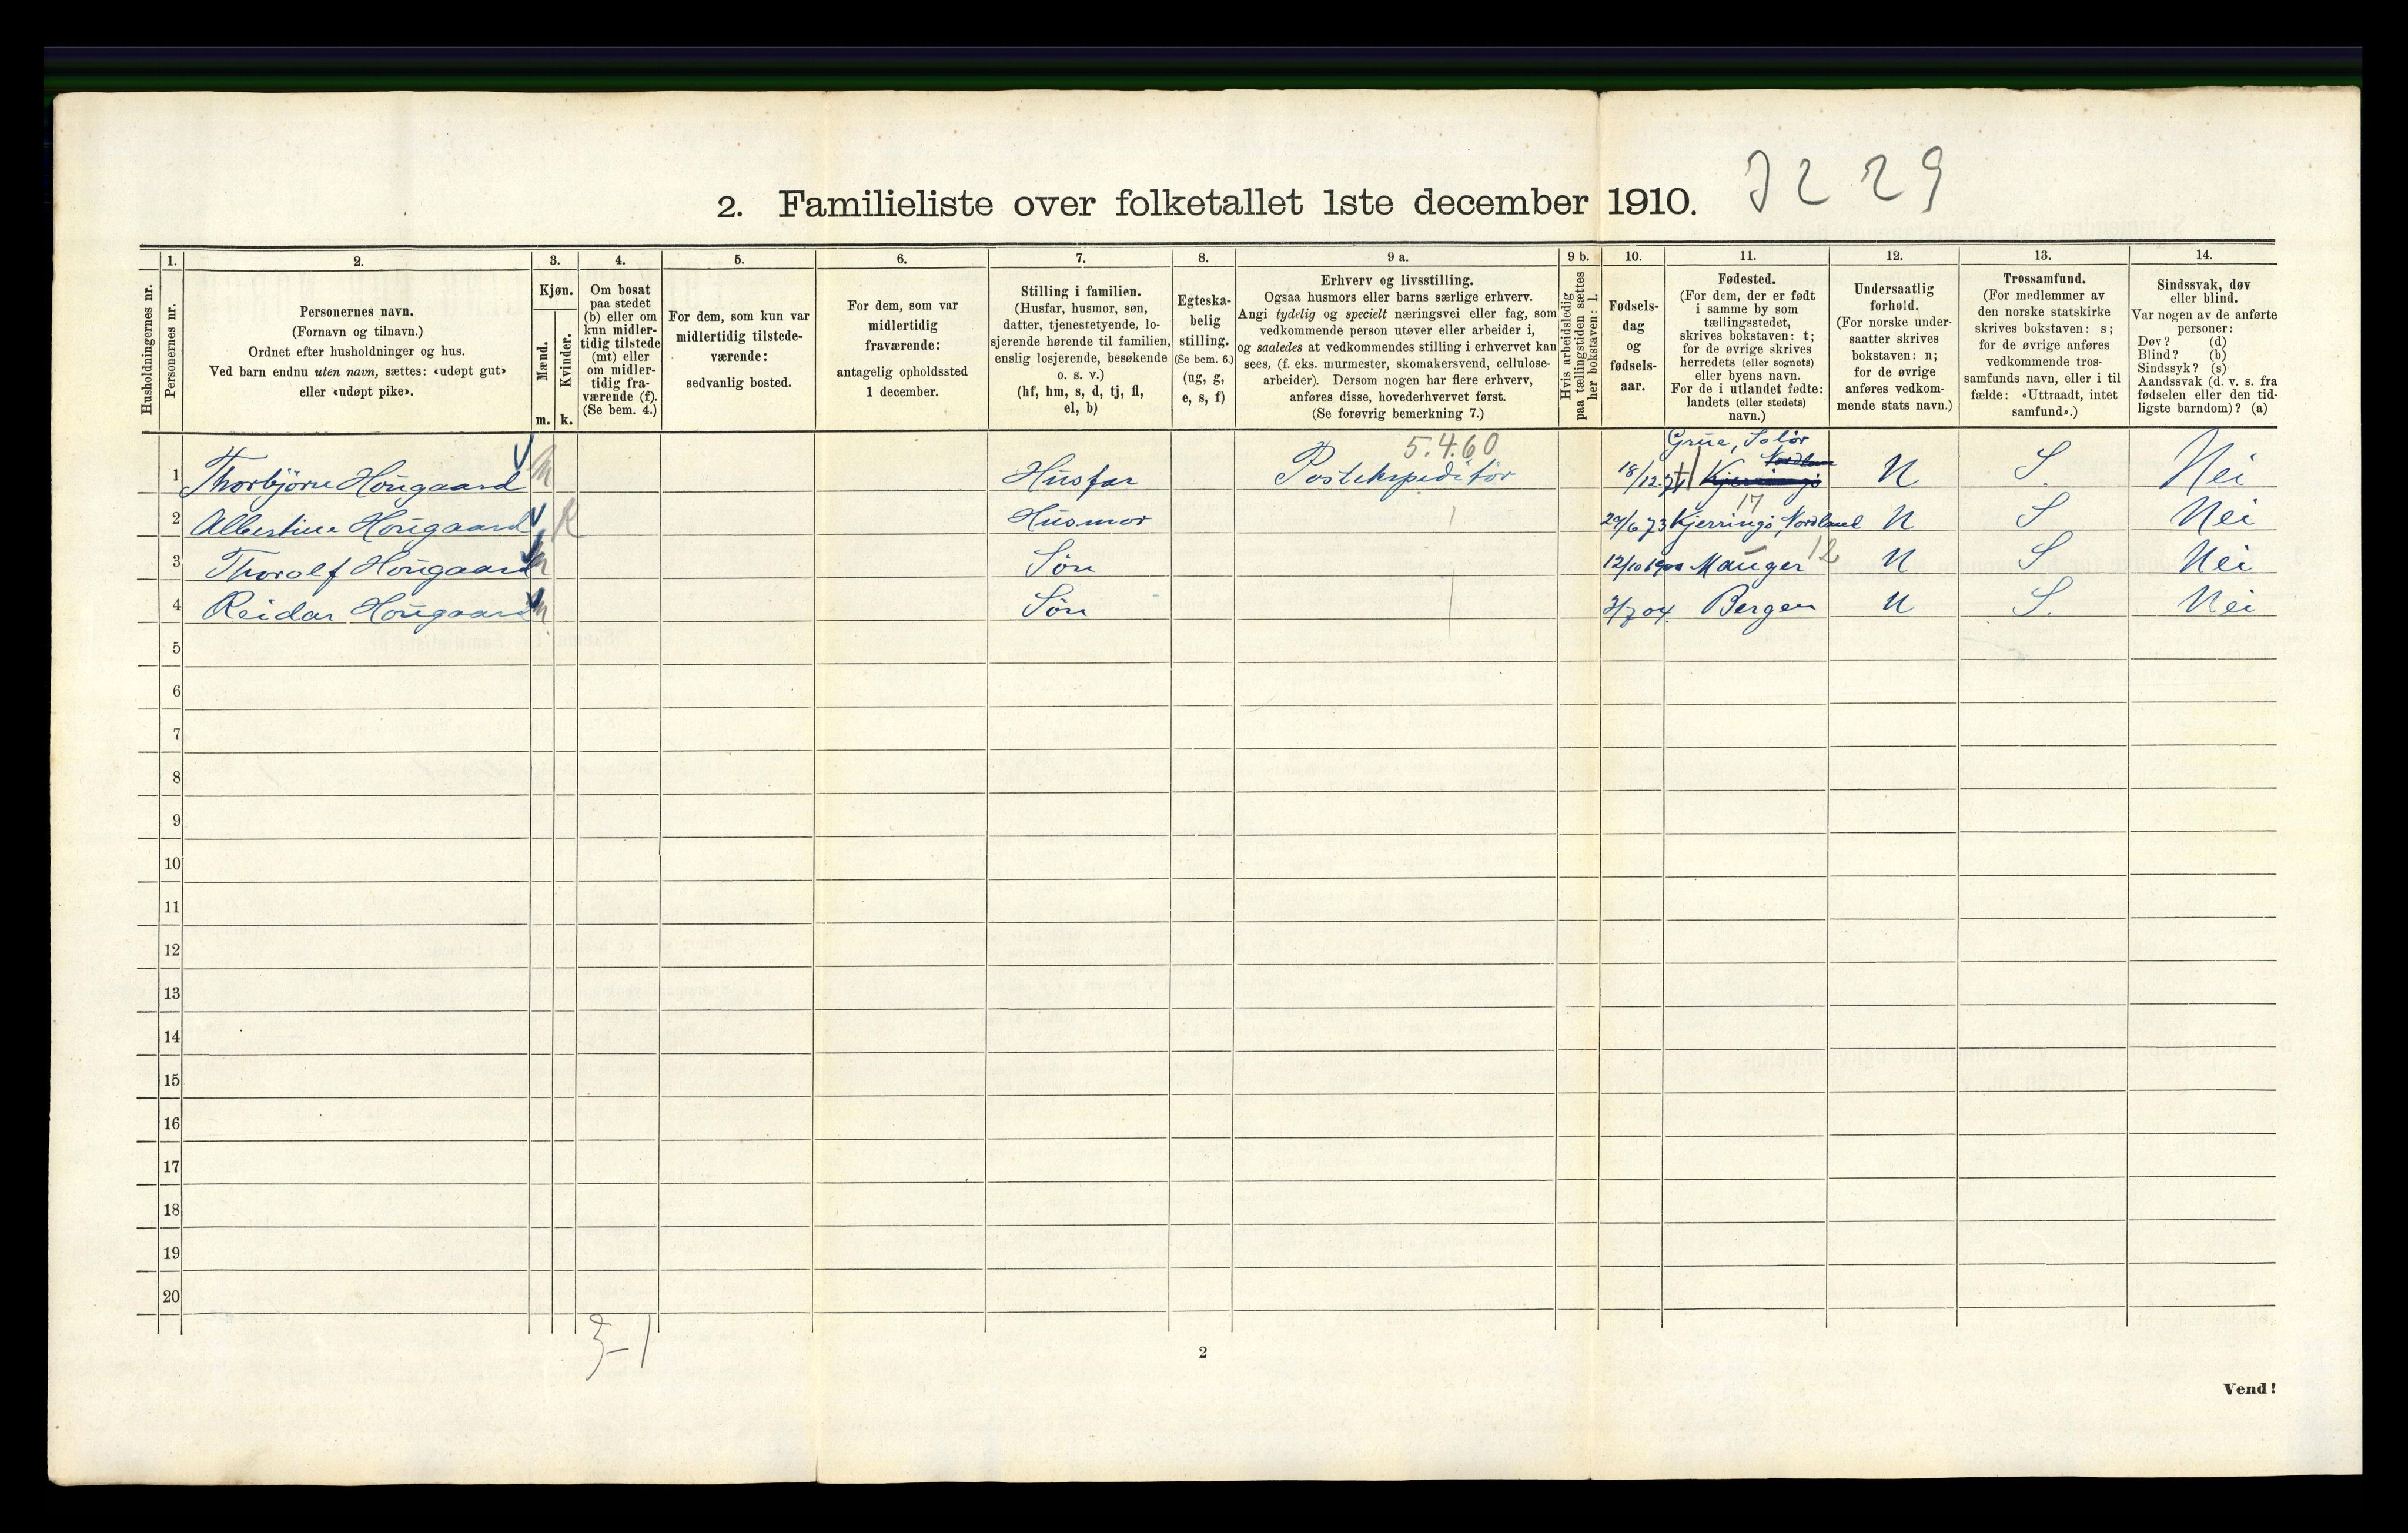 3229
2. Familieliste over folketallet 1ste december 1910.
Husholdningernes nr.
1.
Personernes nr.
2.
Personernes navn.
(Fornavn og tilnavn.)
Ordnet efter husholdninger og hus.
Ved barn endnu uten navn, sættes: «udøpt gut»
eller «udøpt pike».
3.
Kjøn.
Mænd.
m.
Kvinder.
k.
4.
Om bosat
paa stedet
(b) eller om
kun midler-
tidig tilstede
(mt) eller
om midler-
tidig fra-
værende (f).
(Se bem. 4.)
5.
For dem, som kun var
midlertidig tilstede-
værende:
sedvanlig bosted.
6.
For dem, som var
midlertidig
fraværende:
antagelig opholdssted
1 december.
7.
Stilling i familien.
(Husfar, husmor, søn,
datter, tjenestetyende, lo-
sjerende hørende til familien,
enslig losjerende, besøkende
o. s. v.)
(hf, hm, s, d, tj, fl,
el, b)
8.
Egteska-
belig
stilling.
(Se bem. 6.)
(ug, g,
e, s, f)
9 a.
Erhverv og livsstilling.
Ogsaa husmors eller barns særlige erhverv.
Angi tydelig og specielt næringsvei eller fag, som
vedkommende person utøver eller arbeider i,
og saaledes at vedkommendes stilling i erhvervet kan
sees, (f. eks. murmester, skomakersvend, cellulose-
arbeider). Dersom nogen har flere erhverv,
anføres disse, hovederhvervet først.
(Se forøvrig bemerkning 7.)
9 b.
Hvis arbeidsledig
paa tællingstiden sættes
her bokstaven: l.
10.
Fødsels-
dag
og
fødsels-
aar.
11.
Fødested.
(For dem, der er født
i samme by som
tællingsstedet,
skrives bokstaven: t;
for de øvrige skrives
herredets (eller sognets)
eller byens navn.
For de i utlandet fødte:
landets (eller stedets)
navn.)
12.
Undersaatlig
forhold.
(For norske under-
saatter skrives
bokstaven: n;
for de øvrige
anføres vedkom-
mende stats navn.)
13.
Trossamfund.
(For medlemmer av
den norske statskirke
skrives bokstaven: s;
for de øvrige anføres
vedkommende tros-
samfunds navn, eller i til
fælde: «Uttraadt, intet
samfund».)
14.
Sindssvak, døv
eller blind.
Var nogen av de anførte
personer:
Døv? (d)
Blind? (b)
Sindssyk? (s)
Aandssvak (d. v. s. fra
fødselen eller den tid-
ligste barndom)? (a)
5.4.60 Grue, Solør
1 Thorbjørn Hougaard m Husfar Postekspeditør 18/12 71 Kjerringø Nordland N S. Nei
17
2 Albertine Hougaard K Husmor 29/6 73 Kjerringø, Nordland N S Nei
3 Thorolf Hougaard m Søn 12/10 1900 Manger 12 N S Nei
4 Reidar Hougaard m Søn 3/7 04. Bergen N S. Nei
5
6
7
8
9
10
11
12
13
14
15
16
17
18
19
20
3-1
2
Vend!